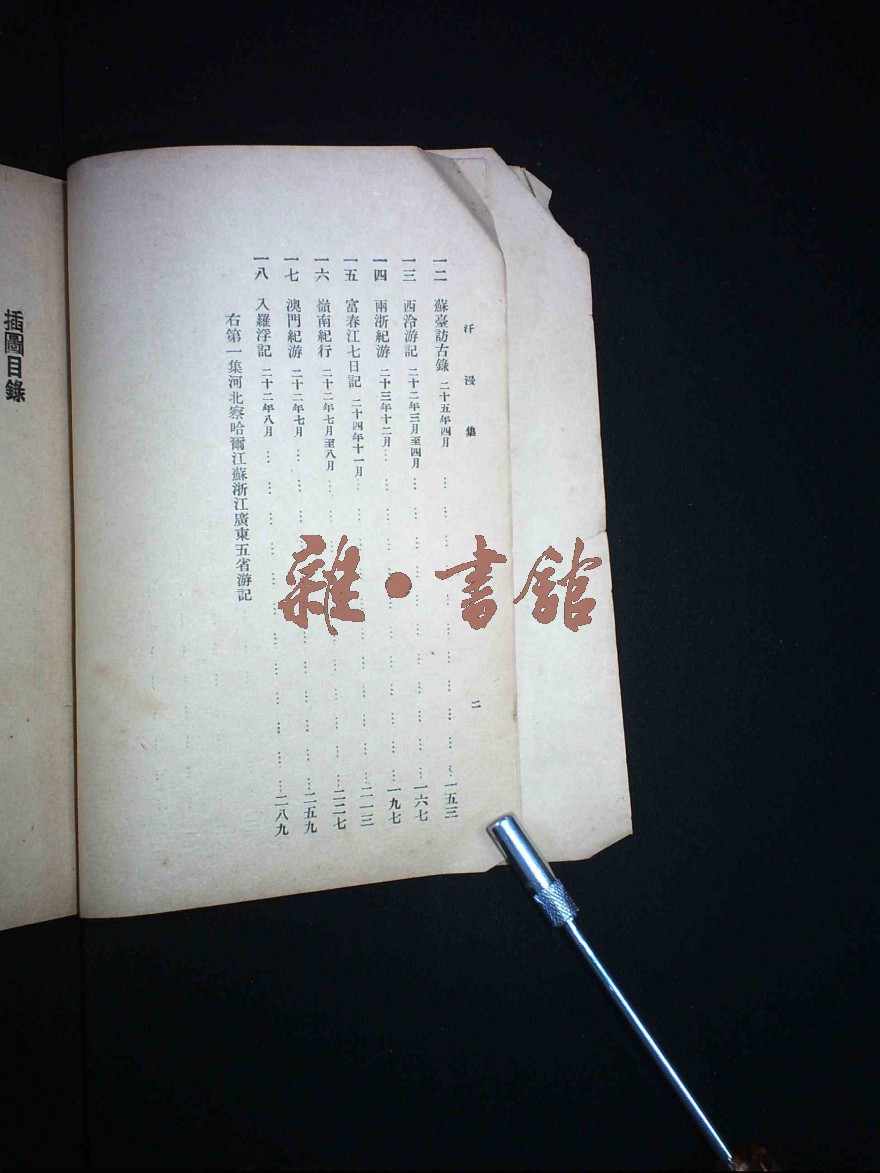 汗漫集
二
一二　蘇臺訪古錄　二十五年四月………一五三
一三　西泠游記　二十二年三月至四月………一六七
一四　兩浙紀游　二十三年十二月………一九七
一五　富春江七日記　二十四年十一月………二一三
一六　嶺南紀行　二十二年七月至八月………二二七
一七　澳門紀游　二十二年七月………二五九
一八　入羅浮記　二十二年八月………二八九
右第一集河北察哈爾江蘇浙江廣東五省游記
插圖目錄
雜·書館